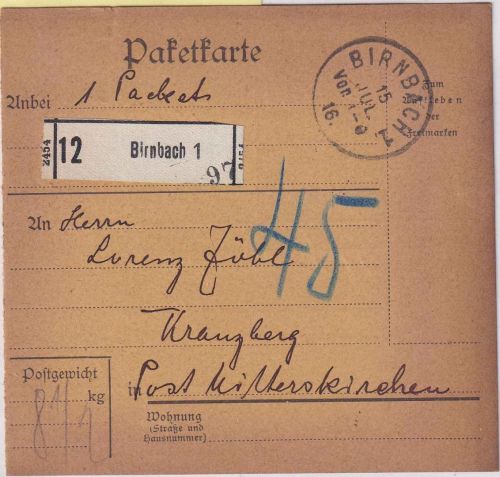 Paketkarte
Anbei 1 Packets
Zum
Aufkleben
der
Freimarken
BIRNBACH 1
15
JUL
Vor. 8-9
16.
12 Birnbach 1
97
45
An Herrn
Lorenz
Kranzberg
in Post Mitterskirchen
Postgewicht
8 1/2 kg
Wohnung
(Straße und
Hausnummer)